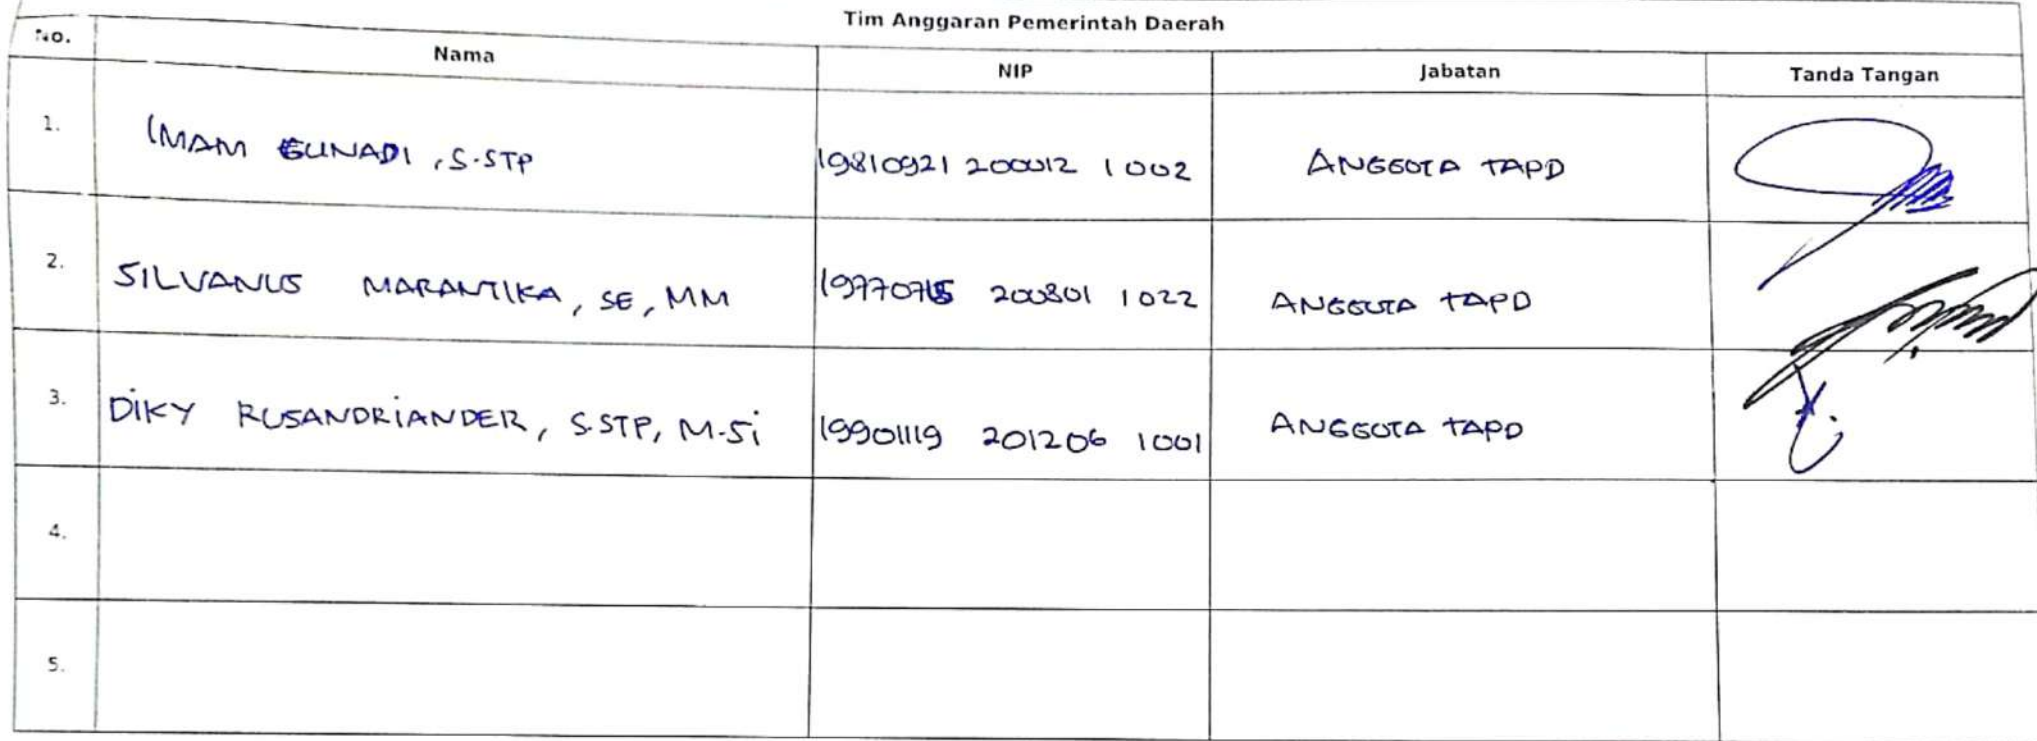 Tim Anggaran Pemerintah Daerah
No. Nama NIP Jabatan Tanda Tangan
1. IMAM GUNADI, S.STP 19810921 200012 1 002 ANGGOTA TAPD
2. SILVANUS MARANTIKA, SE, MM 19770715 200801 1 022 ANGGOTA TAPD
3. DIKY RUSANDRIANDER, S.STP, M.Si 19901119 201206 1 001 ANGGOTA TAPD
4.
5.